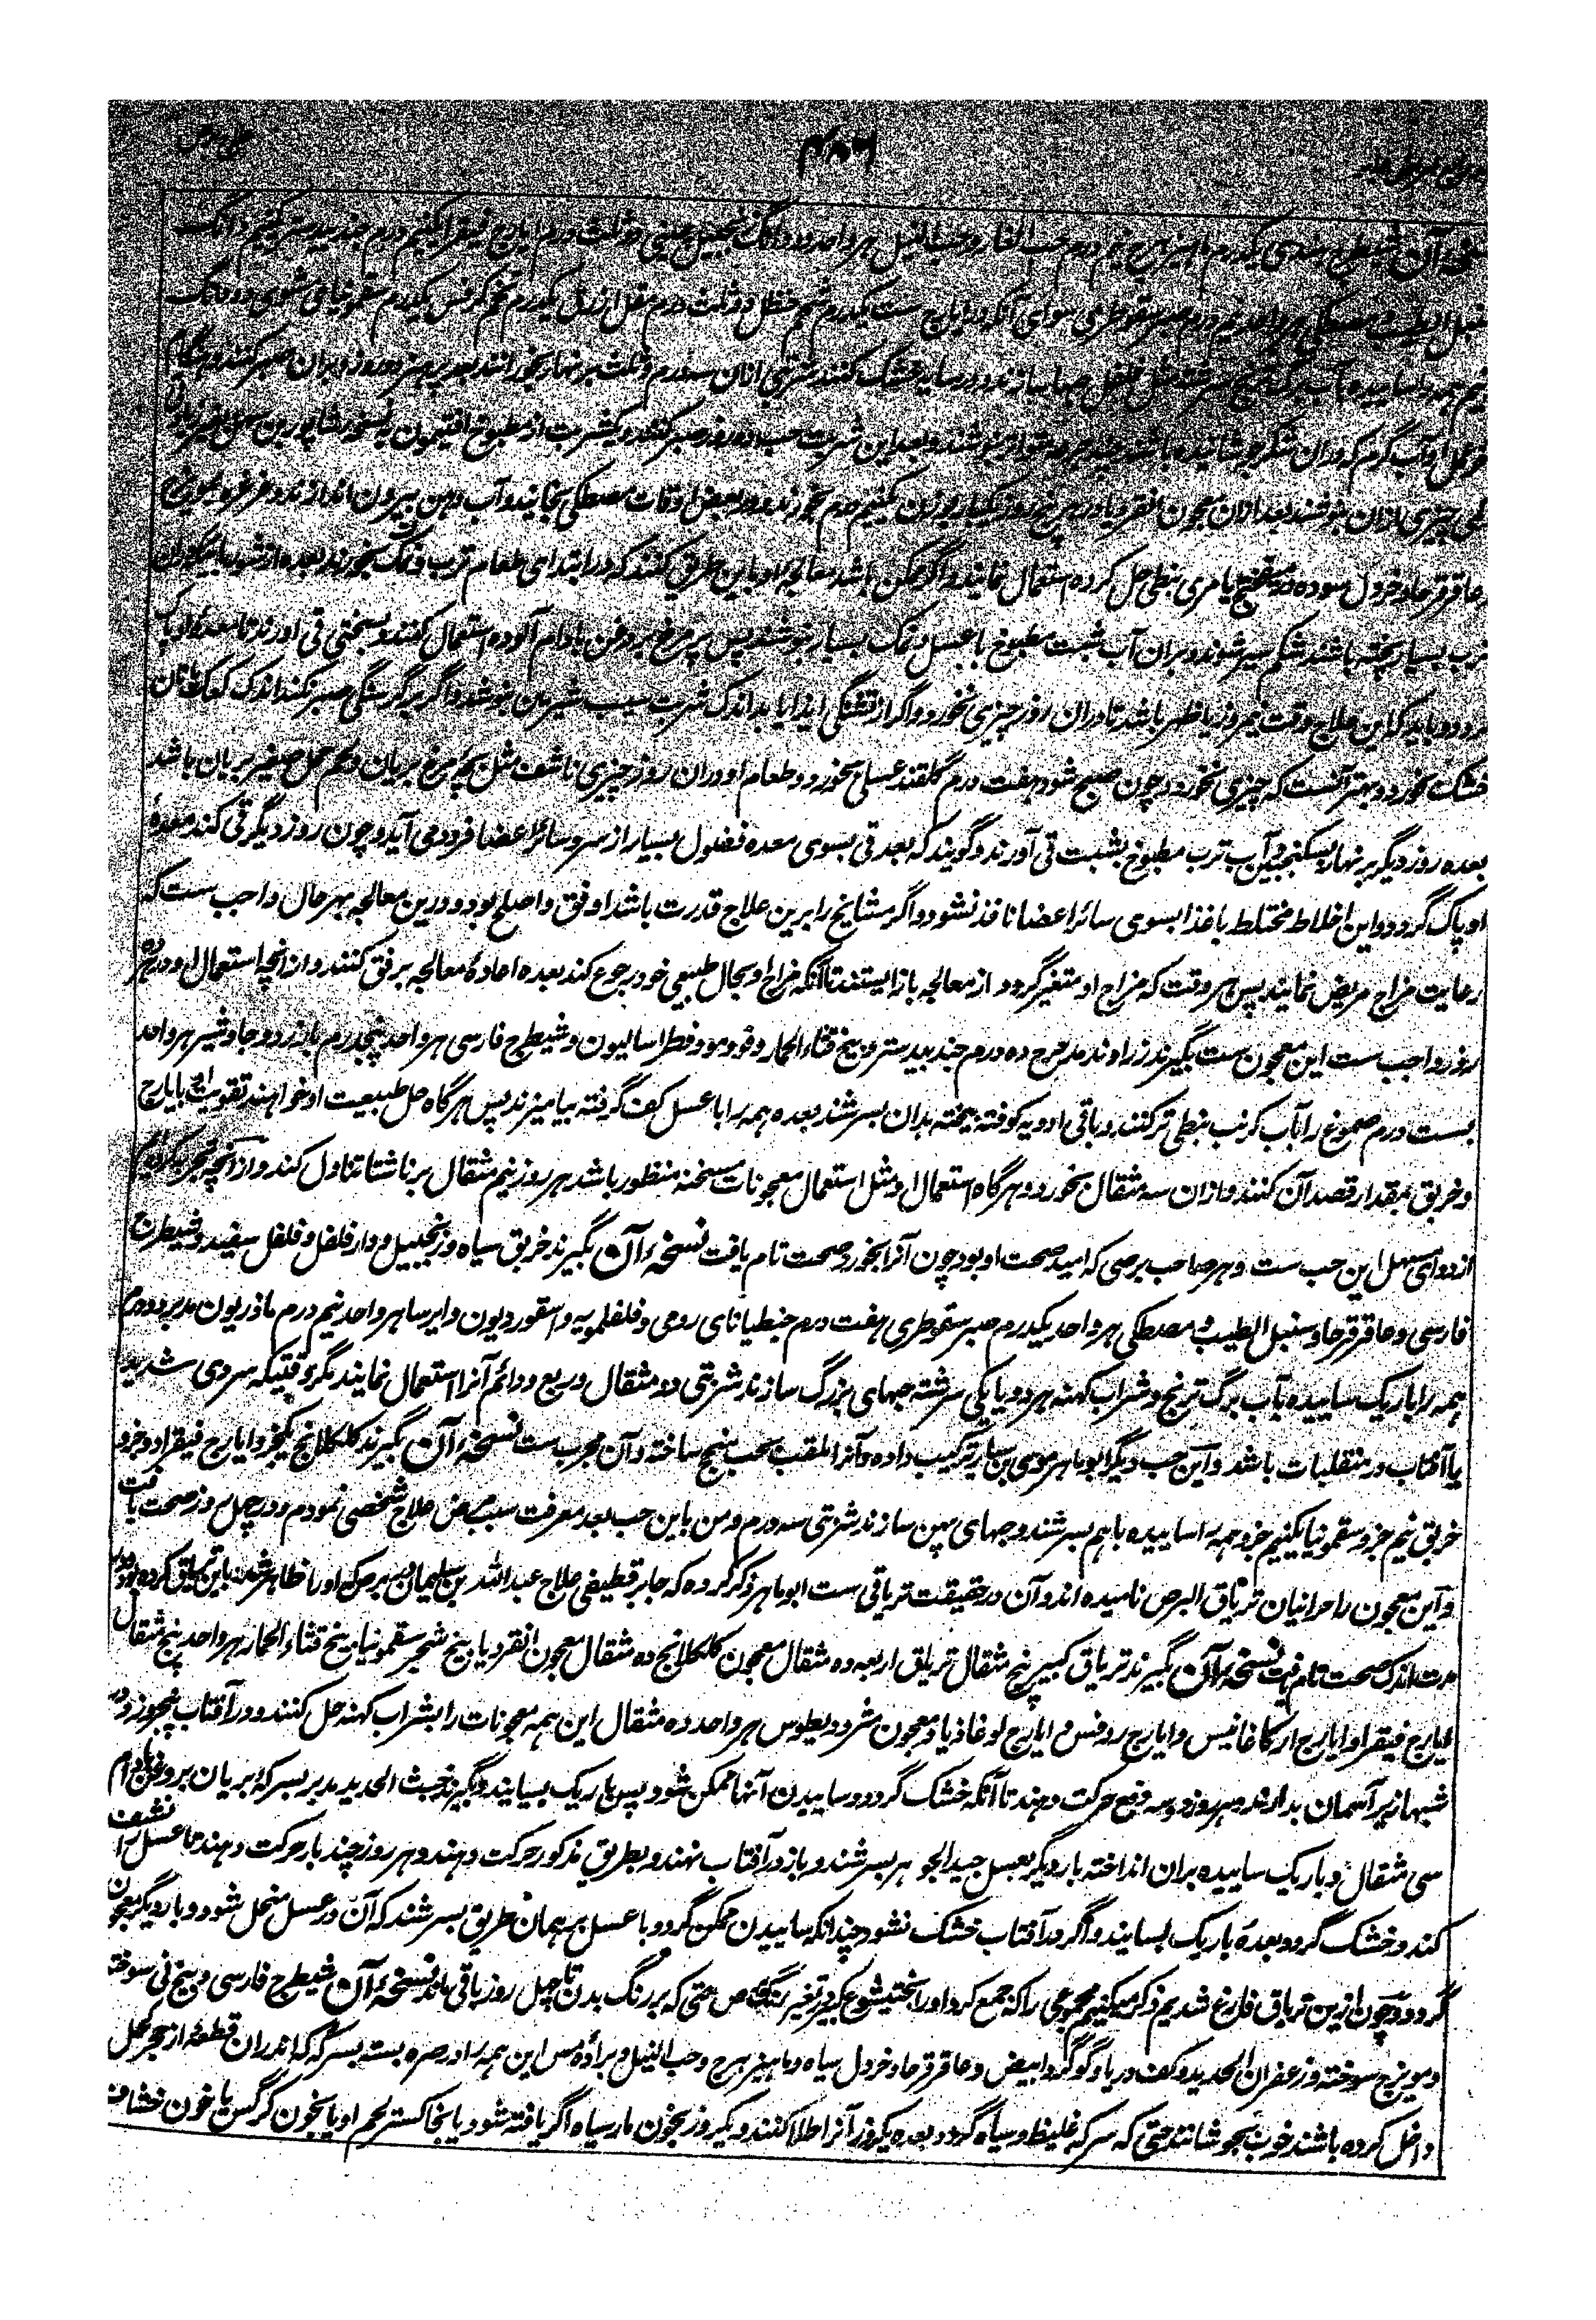 ۴۸۶
نسخهٔ آن شیطرج هندی یکدرم ماهیزهرج نیم درم حب الغار و حب النیل هر واحد دو دانگ زنجبیل چینی دو ثلث درم ایارج فیقرا یکنیم درم جندبیدستر یکنیم دانگ
سنبل الطیب و مصطکی هر واحد نیم درم صبر سقوطری سوای آنکه در ایارج ست یکدرم شحم حنظل دو ثلث درم مقل ازرق یکدرم تخم کرفس یکدرم سقمونیای مشوی دو دانگ
نیم همه را ساییده بآب سرشته مثل فلفل حبها سازند و در سایه خشک کنند شربتی ازان سه درم و ثلث بر نهار بخورانند بعد پرهیز دو روز و بران صبر کنند و هنگام
عمل او آب گرم که دران شکر جوشانیده باشند جرعه جرعه متواتر بنوشند و بعد این شربت حب ده روز صبر کنند و یکشربت از مطبوخ افتیمون بنسخهٔ شاپور بن سهل
چیزی ازان بنوشند بعد ازان معجون انقردیا در هر پنج روز یکبار بوزن یکنیم درم بخورند و در بعض اوقات مصطکی بخایند و آب دهن بیرون اندازند و غرغره بمویزج
و عاقرقرحا و خردل سوده در سکنجبین یا مری نبطی حل کرده استعمال نمایند و اگر ممکن باشد معالجهٔ او باین طریق کنند که در ابتدای طعام ترب و نمک بخورند بعده از شوربا که دران
ترب بسیار پخته باشند شکم سیر شوند و بران آب شبت مطبوخ با عسل و نمک بسیار بنوشند پس پر مرغ بروغن بادام آلوده استعمال کنند و بسختی قی آورند تا معدهٔ او پاک
گردد و باید که این علاج وقت نیمروز یا ظهر باشد تا دران روز چیزی نخورد و اگر از تشنگی ایذا یابد اندک شربت سیب شیرین بنوشد و اگر بر گرسنگی صبر نکند اندک کعک نان
خشک بخورد و بهتر آنست که چیزی نخورد و چون صبح شود هفت درم گلقند عسلی بخورد و طعام او دران روز چیزی ناشف مثل بچهٔ مرغ بریان و لحم حمل صغیر بریان باشد
بعده روز دیگر بر نهار بسکنجبین و آب ترب مطبوخ بشبت قی آورند و گویند که بعد قی بسوی معده فضول بسیار از سر و سائر اعضا فرود می آید و چون روز دیگر قی کند معدهٔ
او پاک گردد و این اخلاط مختلط با غذا بسوی سائر اعضا نافذ نشود و اگر مشایخ را برین علاج قدرت باشد اوفق و اصلح بود و درین معالجه بهر حال واجب ست که
رعایت مزاج مریض نمایند پس هر وقت که مزاج او متغیر گردد از معالجه باز ایستند تا آنکه مزاج او بحال طبیعی خود رجوع کند بعده اعادهٔ معالجه برفق کنند و از انچه استعمال او در هر ده
روز واجب ست این معجون ست بگیرند زراوند مدحرج ده درم جندبیدستر و بیخ قثاء الحمار و قوو مو و فطراسالیون و شیطرج فارسی هر واحد پنجدرم بازرد و جاوشیر هر واحد
بست درم صموغ را بآب کرنب نبطی تر کنند و باقی ادویه کوفته بیخته بدان بسرشند بعده همه را با عسل کف گرفته بیامیزند پس هرگاه حل طبیعت او خواهند تقویت او بایارج
و خربق بمقدار قصد آن کنند و ازان سه مثقال بخورد و هرگاه استعمال او مثل استعمال معجونات مسخنه منظور باشد هر روز نیم مثقال بر ناشتا تناول کند و از انچه تجربه کرده ایم
از دوای مسهل این حب ست و هر صاحب برصی که امید صحت او بود چون آنرا بخورد صحت تام یافت نسخهٔ آن بگیرند خربق سیاه و زنجبیل و دار فلفل و فلفل سفید و شیطرج
فارسی و عاقرقرحا و سنبل الطیب و مصطکی هر واحد یکدرم صبر سقوطری هفت درم جنطیانای رومی و فلفلمویه و اسقوردیون و ایرسا هر واحد نیم درم ماذریون مدبر دو درم
همه را باریک ساییده بآب برگ ترنج و شراب کهنه هر دو یا یکی سرشته حبهای بزرگ سازند شربتی دو مثقال و ربع و دائم آنرا استعمال نمایند مگر وقتیکه سردی شدید
یا آفتاب در منقلبات باشد و این حب دیگر ابو ماهر موسی بن سیار ترکیب داده و آنرا ملقب بحب بنج ساخته و آن مجرب ست نسخهٔ آن بگیرند کلکلانج یکجزو ایارج فیقرا دو جزو
خربق نیم جزو سقمونیا یکنیم جزو همه را ساییده باهم بسرشند و حبهای پهن سازند شربتی سه درم و من باین حب بعد معرفت سبب مرض علاج شخصی نمودم و در چهل روز صحت یافت
و این معجون را حرانیان تریاق البرص نامیده اند و آن در حقیقت تریاقی ست ابو ماهر ذکر کرده که جابر قطیفی علاج عبد الله بن سلیمان در برص که او را ظاهر شد باین تریاق کرده بود در
مدت اندک صحت تام یافت نسخهٔ آن بگیرند تریاق کبیر پنج مثقال تریاق اربعه ده مثقال معجون کلکلانج ده مثقال معجون انقردیا بیخ شجر سقمونیا بیخ قثاء الحمار هر واحد پنج مثقال
ایارج فیقرا و ایارج ارکاغانیس و ایارج روفس و ایارج لوغاذیا و معجون مثرودیطوس هر واحد ده مثقال این همه معجونات را بشراب کهنه حل کنند و در آفتاب پنجروز و در
شبها زیر آسمان بدارند و هر روز دو سه دفع حرکت دهند تا آنکه خشک گردد و ساییدن آنها ممکن شود پس باریک بسایند و بگیرند خبث الحدید مدبر بسرکه بریان بروغن بادام
سی مثقال و باریک ساییده بران انداخته بار دیگر بعسل جید الجوهر بسرشند و باز در آفتاب نهند و بطریق مذکور حرکت دهند و هر روز چند بار حرکت دهند تا عسل را نشف
کند و خشک گردد بعده باریک بسایند و اگر در آفتاب خشک نشود چندانکه ساییدن ممکن گردد با عسل بر همان طریق بسرشند که آن در عسل منحل شود و بار دیگر معجون
گردد و چون ازین تریاق فارغ شدیم ذکر میکنیم مجموعی را که جمع کرد او را بختیشوع کبیر در تغیر رنگ برص حتی که بر رنگ بدن تا چهل روز باقی ماند نسخهٔ آن شیطرج فارسی و بیخ نی سوخته
و مویزج سوخته و زعفران الحدید و کف دریا و گوگرد ابیض و عاقرقرحا و خردل سیاه و ماهیزهرج و حب النیل و برادهٔ مس این همه را در صره بسته بسرکه که اندران قطعهٔ از حجر کحل
داخل کرده باشند خوب بجوشانند حتی که سرکه غلیظ و سیاه گردد بعده یکروز آنرا طلا کنند و یکروز بخون مار سیاه اگر یافته شود یا بخاکستر لحم او یا بخون کرگس یا خون خشاف